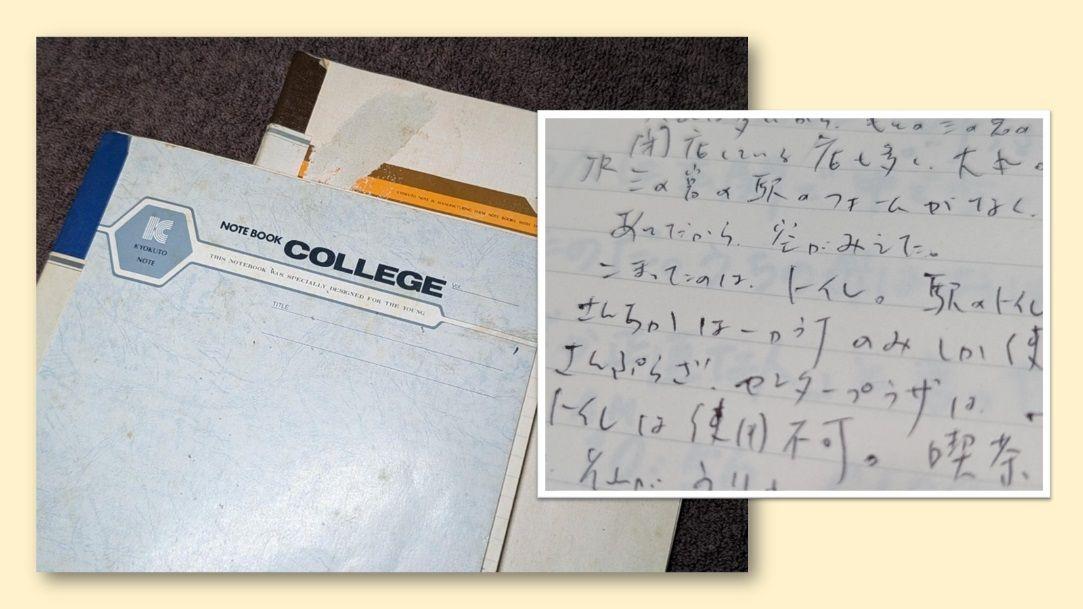 KYOKUTO
NOTE
NOTE BOOK COLLEGE
THIS NOTEBOOK HAS SPECIALLY DESIGNED FOR THE YOUNG
TITLE
閉店している店も多く、
三の宮の駅のフォームがなく、
空がみえた。
こまったのは、トイレ。駅のトイレ
さんちかは一カ所のみしか使
さんぷらざ、センタープラザは
トイレは使用不可。喫茶